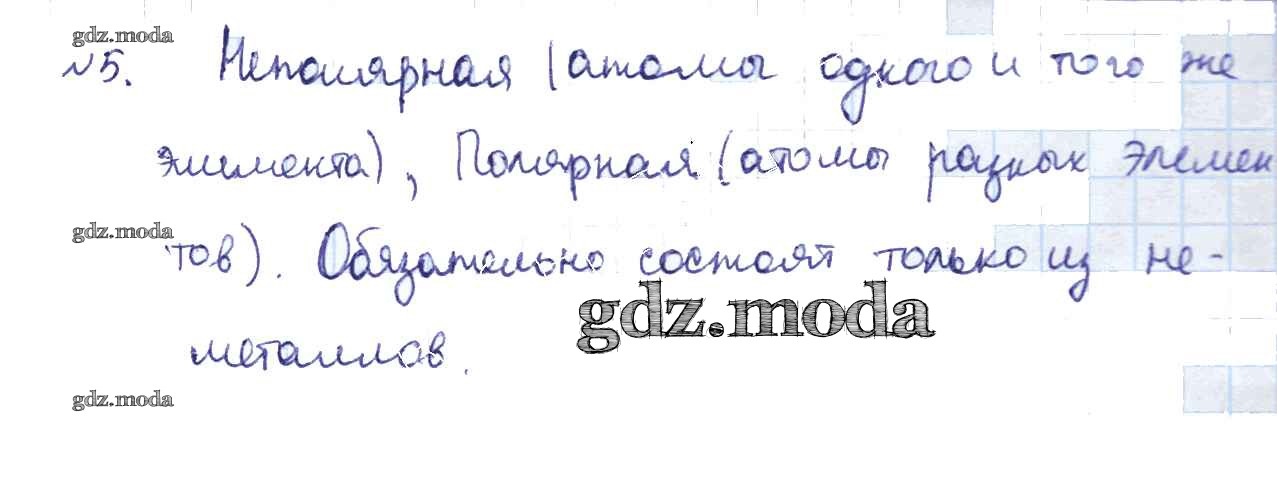 gdz.moda
№5. Неполярная (атомы одного и того же
элемента), Полярная (атомы разных элемен
тов). Обязательно состоят только из не-
gdz.moda
gdz.moda
металлов.
gdz.moda